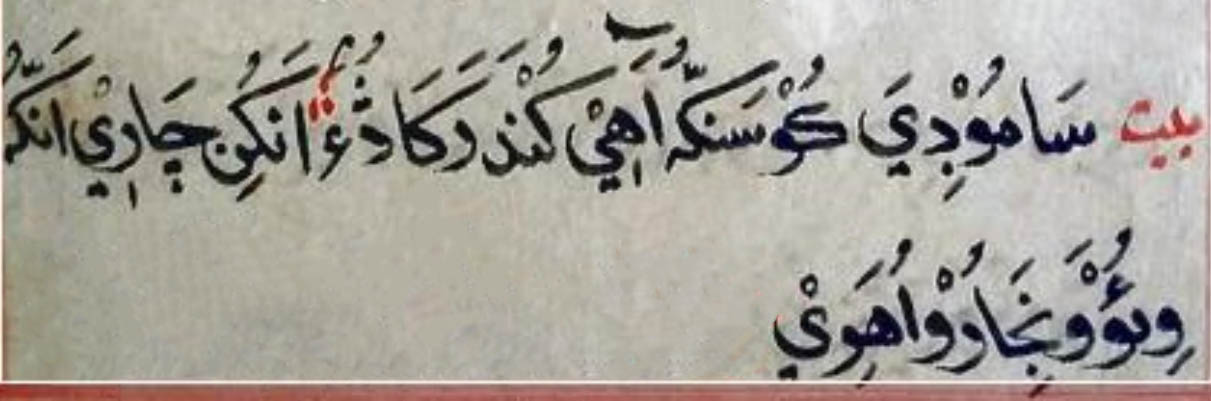 بيت سَامُوْدِيَ كُوْ سَنكَہُّ آهِيْ كُندَرَ كَادُءْ اَنكُنِ چَارِيْ اَنكَہُّ
وِئُوْوَ نِجَاوُوْ اُهَوِيْ